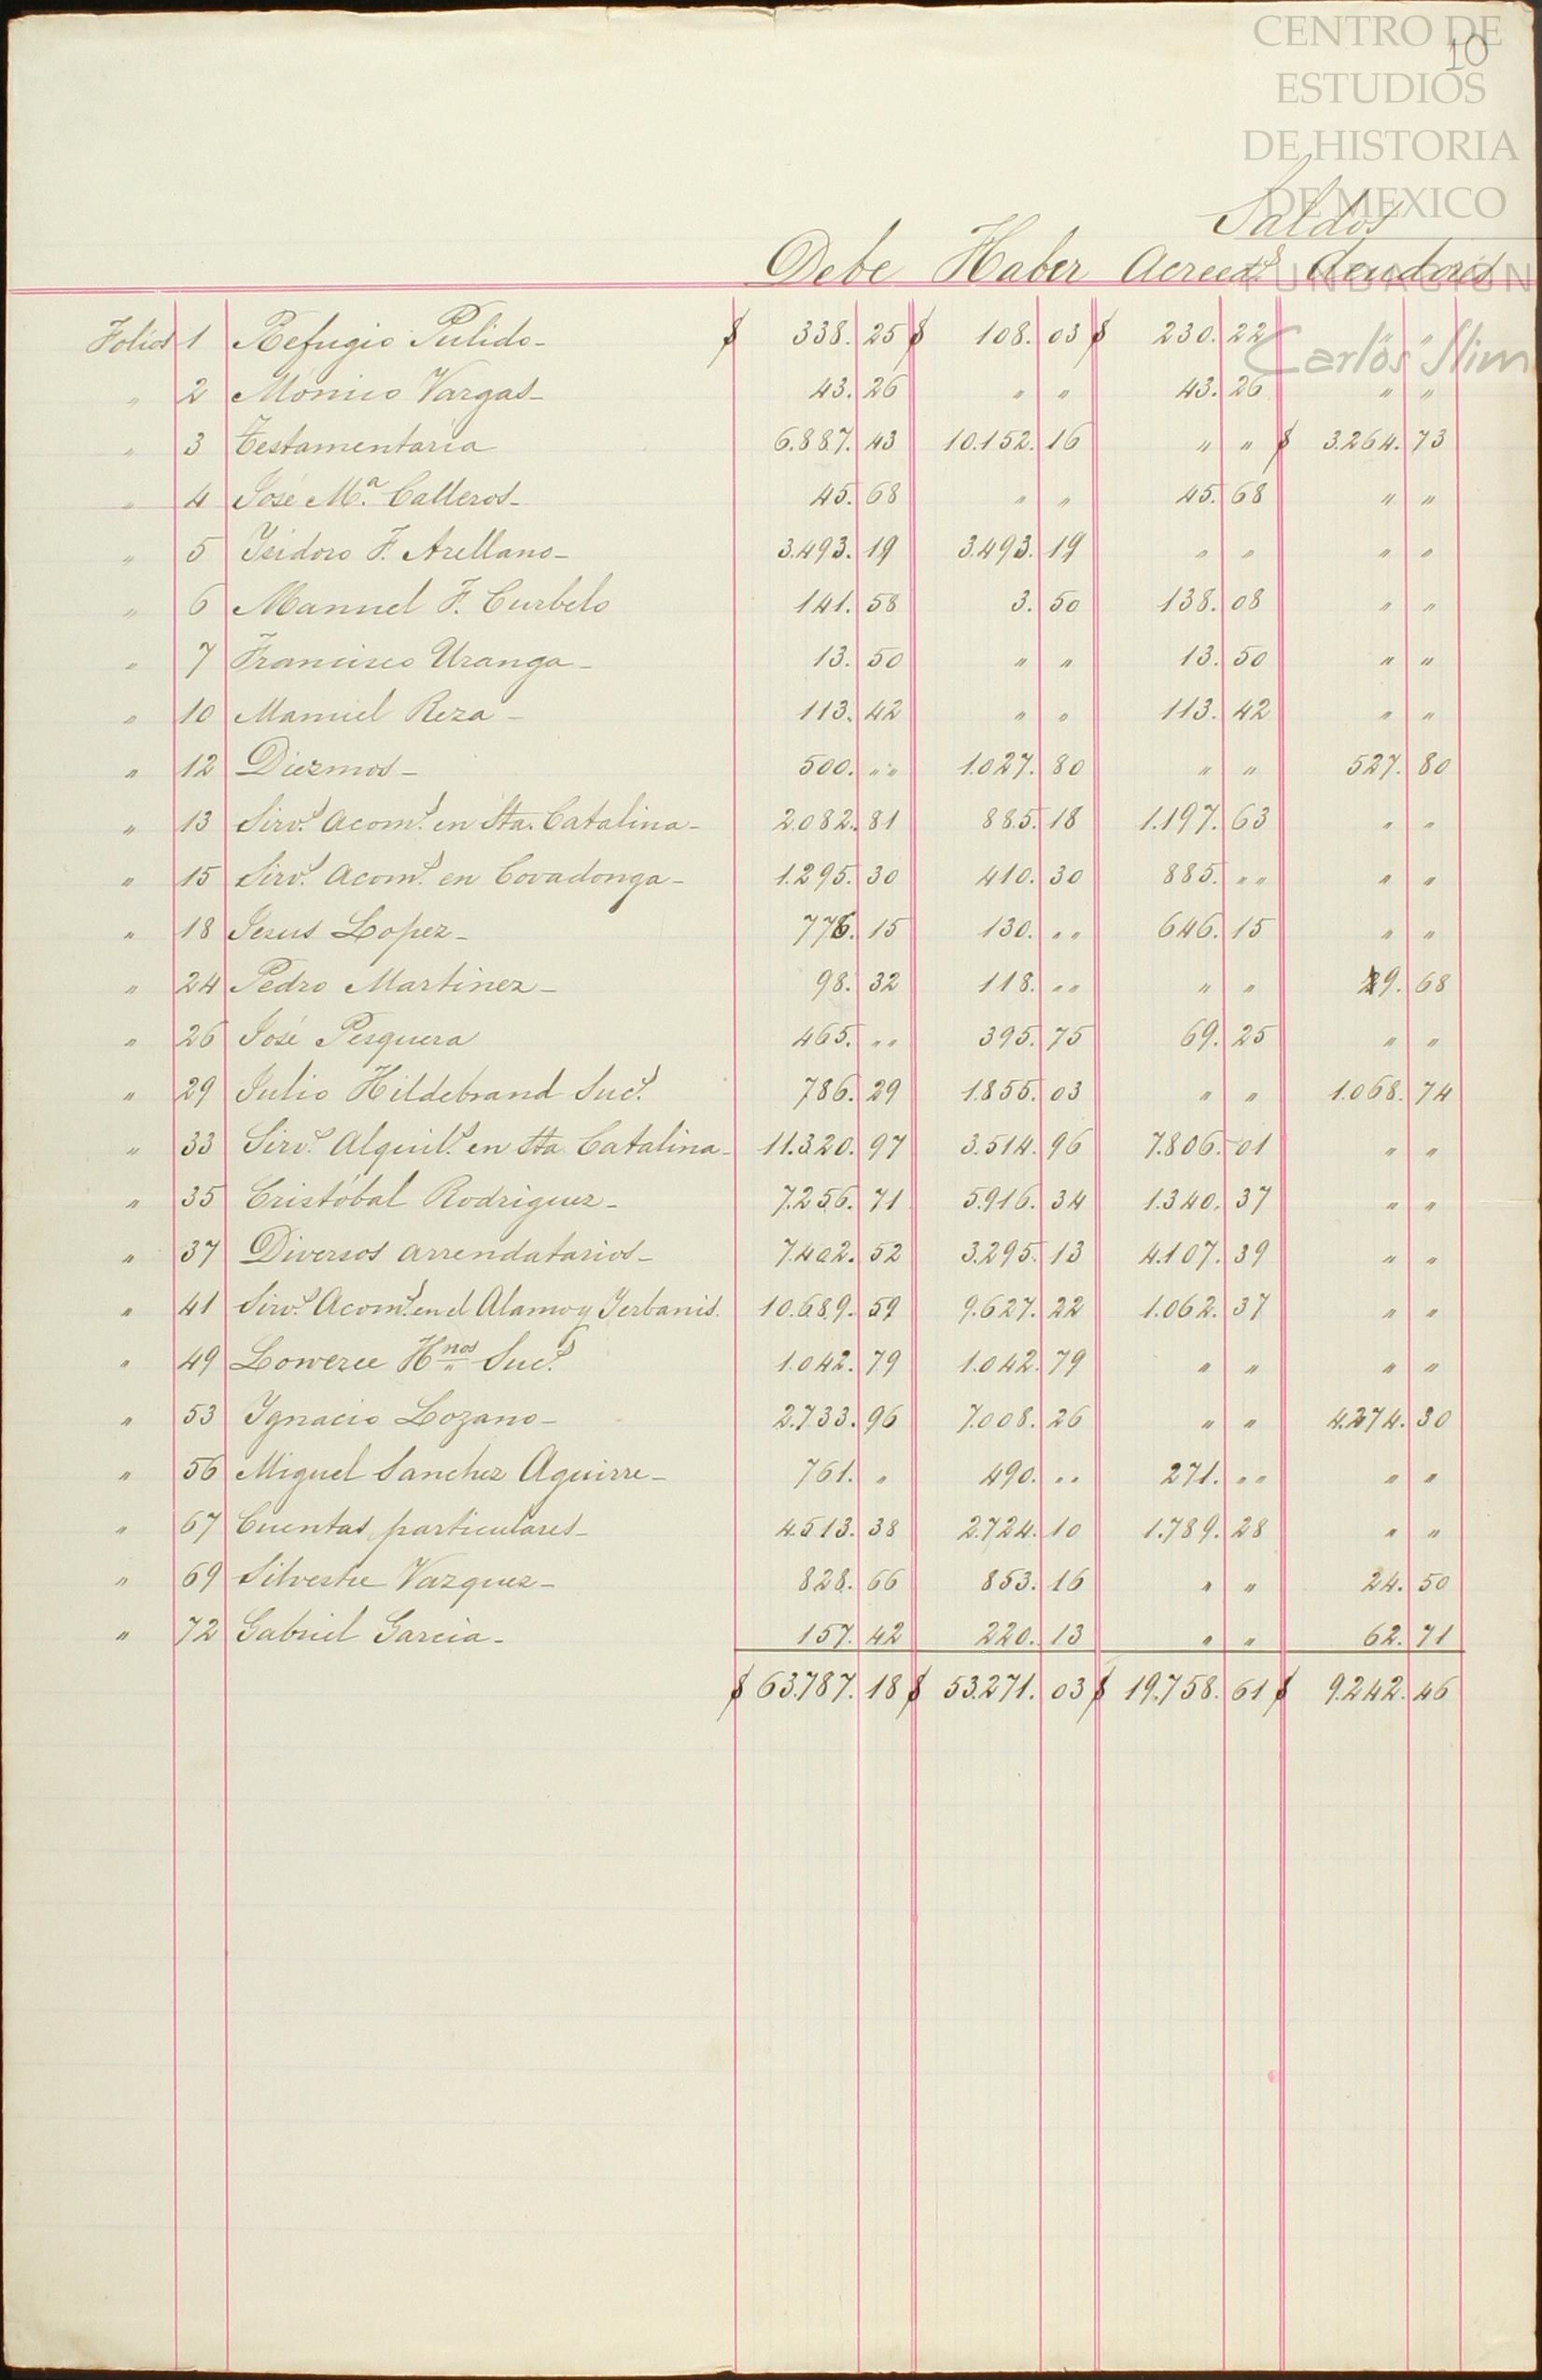 CENTRO DE
10
ESTUDIOS
DE HISTORIA
DE MEXICO
FUNDACIÓN
Carlos Slim
Saldos
Debe Haber Acreed.s deudores
Folios 1 Refugio Pulido- $ 338. 25 $ 108. 03 $ 230. 22 " "
" 2 Mónico Vargas- 43. 26 " " 43. 26 " "
" 3 Testamentaria 6.887. 43 10.152. 16 " " $ 3.264. 73
" 4 José M.a Calleros- 45. 68 " " 45. 68 " "
" 5 Isidoro F. Arellano- 3.493. 19 3.493. 19 " " " "
" 6 Manuel F. Curbelo 141. 58 3. 50 138. 08 " "
" 7 Francisco Uranga- 13. 50 " " 13. 50 " "
" 10 Manuel Reza- 113. 42 " " 113. 42 " "
" 12 Diezmos- 500. "" 1.027. 80 " " 527. 80
" 13 Sirv.s Acom.s en Sta. Catalina- 2.082. 81 885. 18 1.197. 63 " "
" 15 Sirv.s Acom.s en Covadonga- 1.295. 30 410. 30 885. "" " "
" 18 Jesus Lopez- 776. 15 130. "" 646. 15 " "
" 24 Pedro Martinez- 98. 32 118. "" " " 19. 68
" 26 José Pesquera 465. "" 395. 75 69. 25 " "
" 29 Julio Hildebrand Suc.s 786. 29 1.855. 03 " " 1.068. 74
" 33 Sirv.s Alquil.s en Sta. Catalina- 11.320. 97 3.514. 96 7.806. 01 " "
" 35 Cristóbal Rodriguez- 7.256. 71 5.916. 34 1.340. 37 " "
" 37 Diversos arrendatarios- 7.402. 52 3.295. 13 4.107. 39 " "
" 41 Sirv.s Acom.s en el Alamo y Yerbanis. 10.689. 59 9.627. 22 1.062. 37 " "
" 49 Loweree Hnos Suc.s 1.042. 79 1.042. 79 " " " "
" 53 Ygnacio Lozano- 2.733. 96 7.008. 26 " " 4.274. 30
" 56 Miguel Sanchez Aguirre- 761. " 490. "" 271. "" " "
" 67 Cuentas particulares- 4.513. 38 2.724. 10 1.789. 28 " "
" 69 Silvestre Vazquez- 828. 66 853. 16 " " 24. 50
" 72 Gabriel Garcia- 157. 42 220. 13 " " 62. 71
$ 63.787. 18 $ 53.271. 03 $ 19.758. 61 $ 9.242. 46